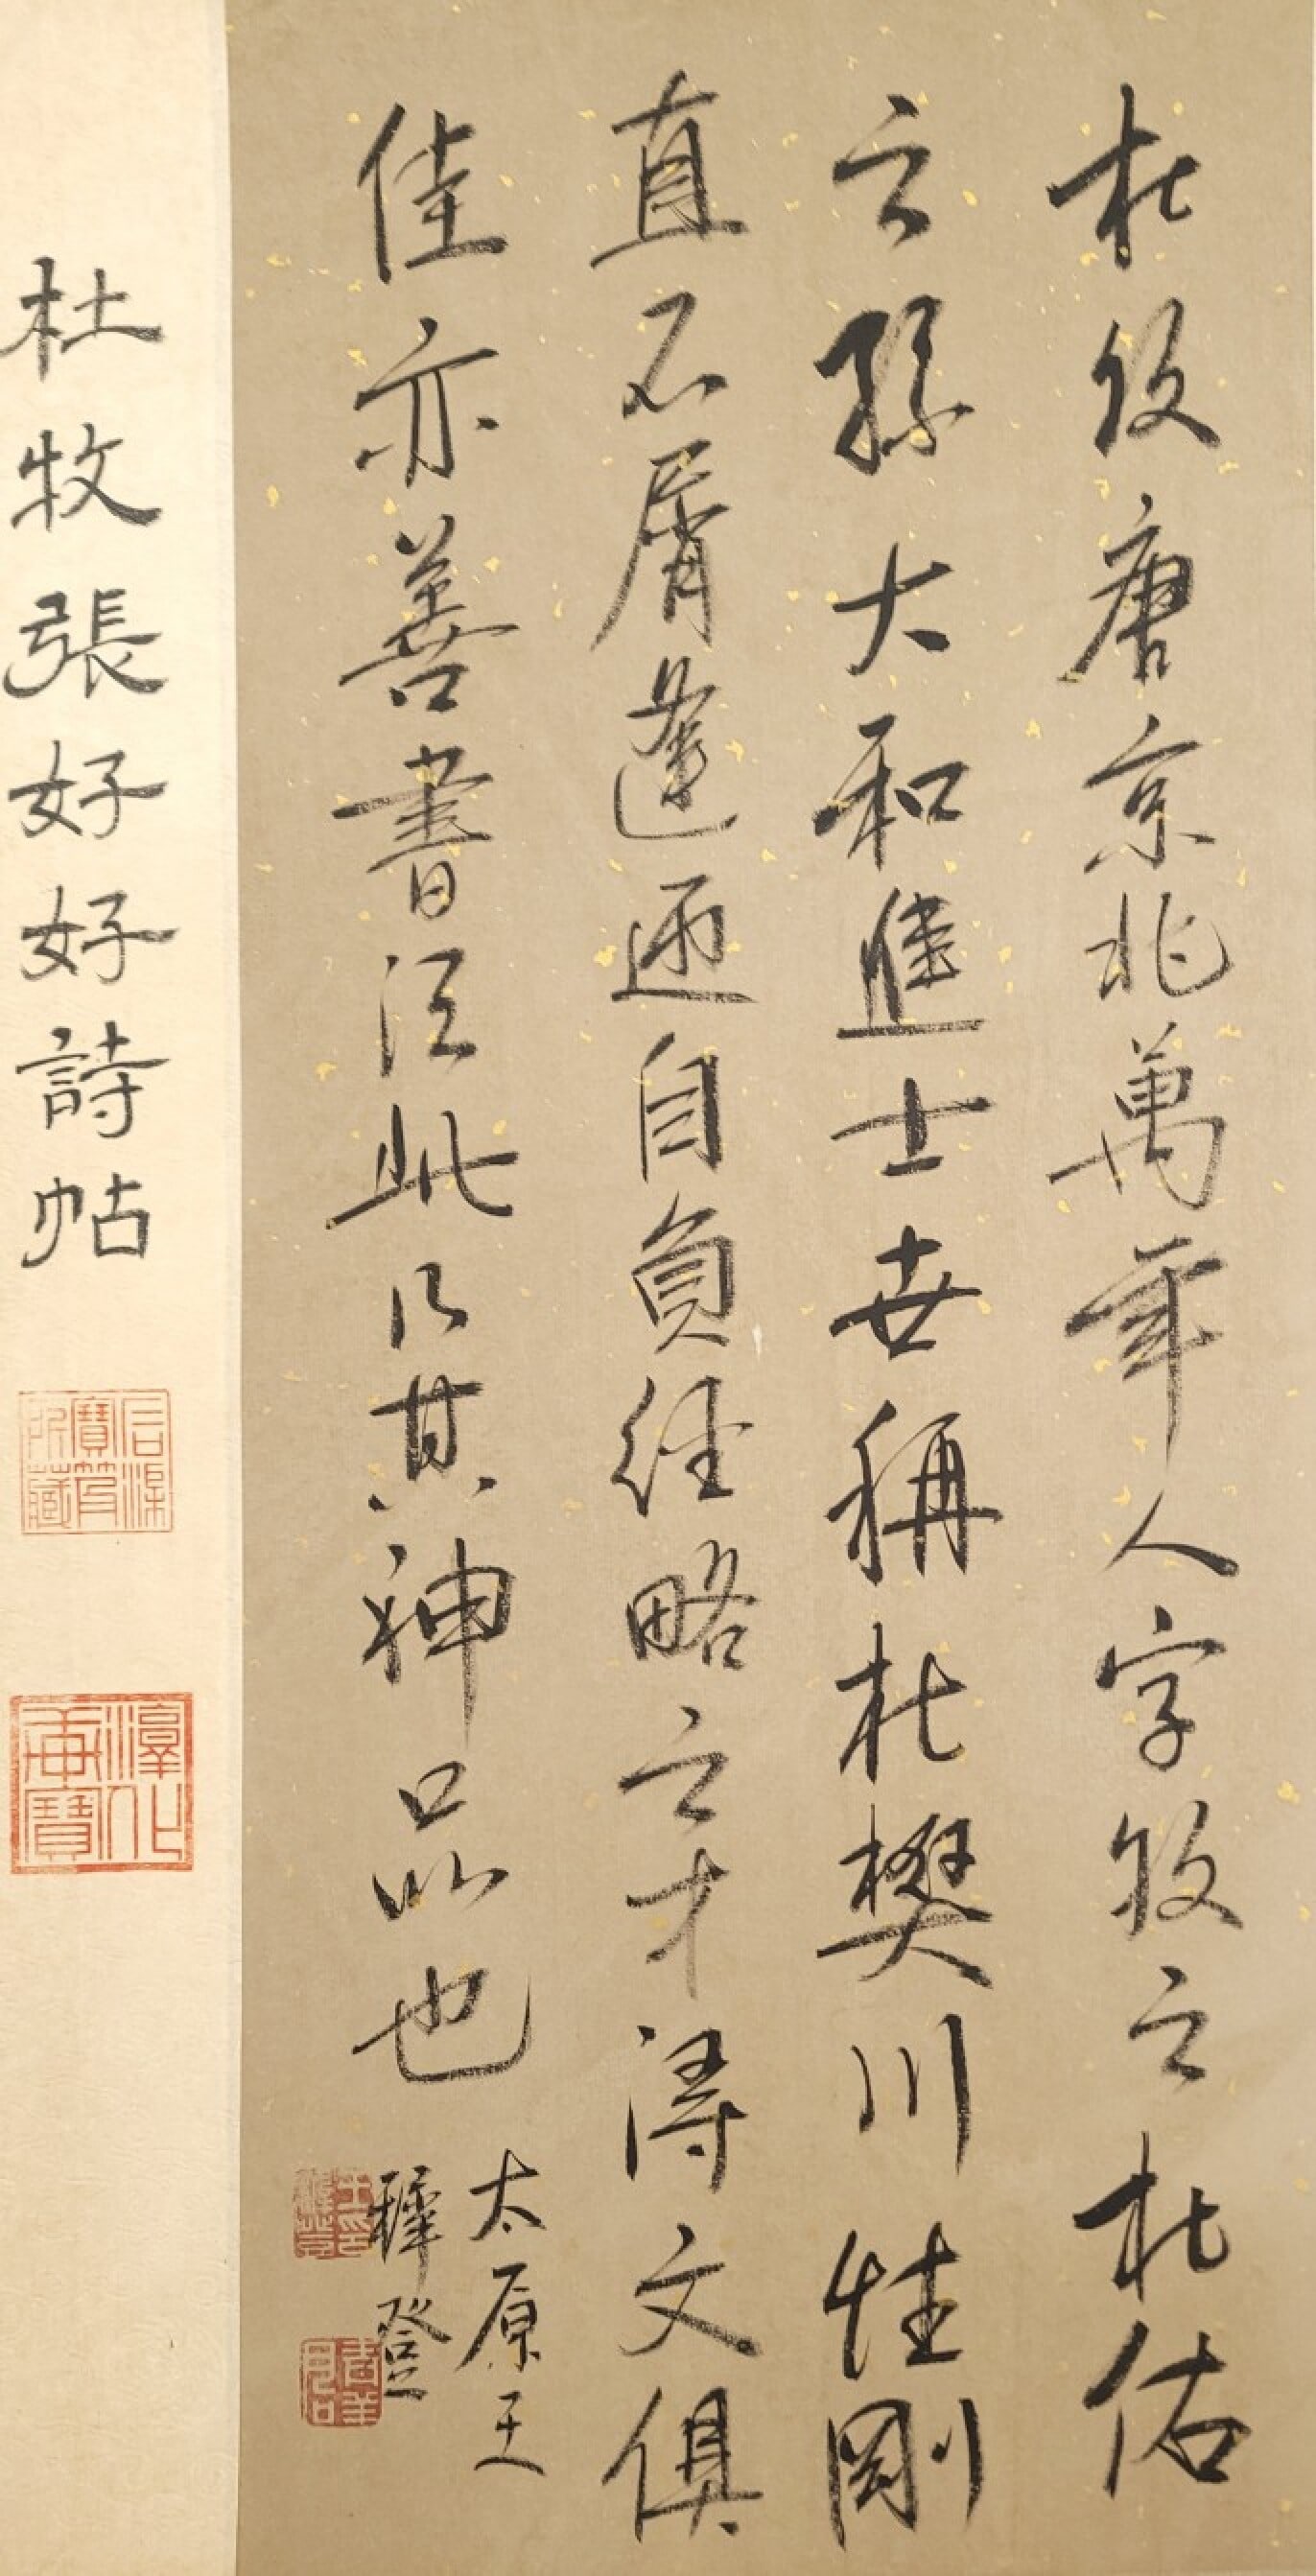 杜牧唐京兆萬年人字牧之杜佑
之孫大和進士世稱杜樊川性剛
直不屑逢迎自負經略之才詩文俱
佳亦善書法此乃其神品也
太原王
穉登
杜牧張好好詩帖
石渠
寶笈
所藏